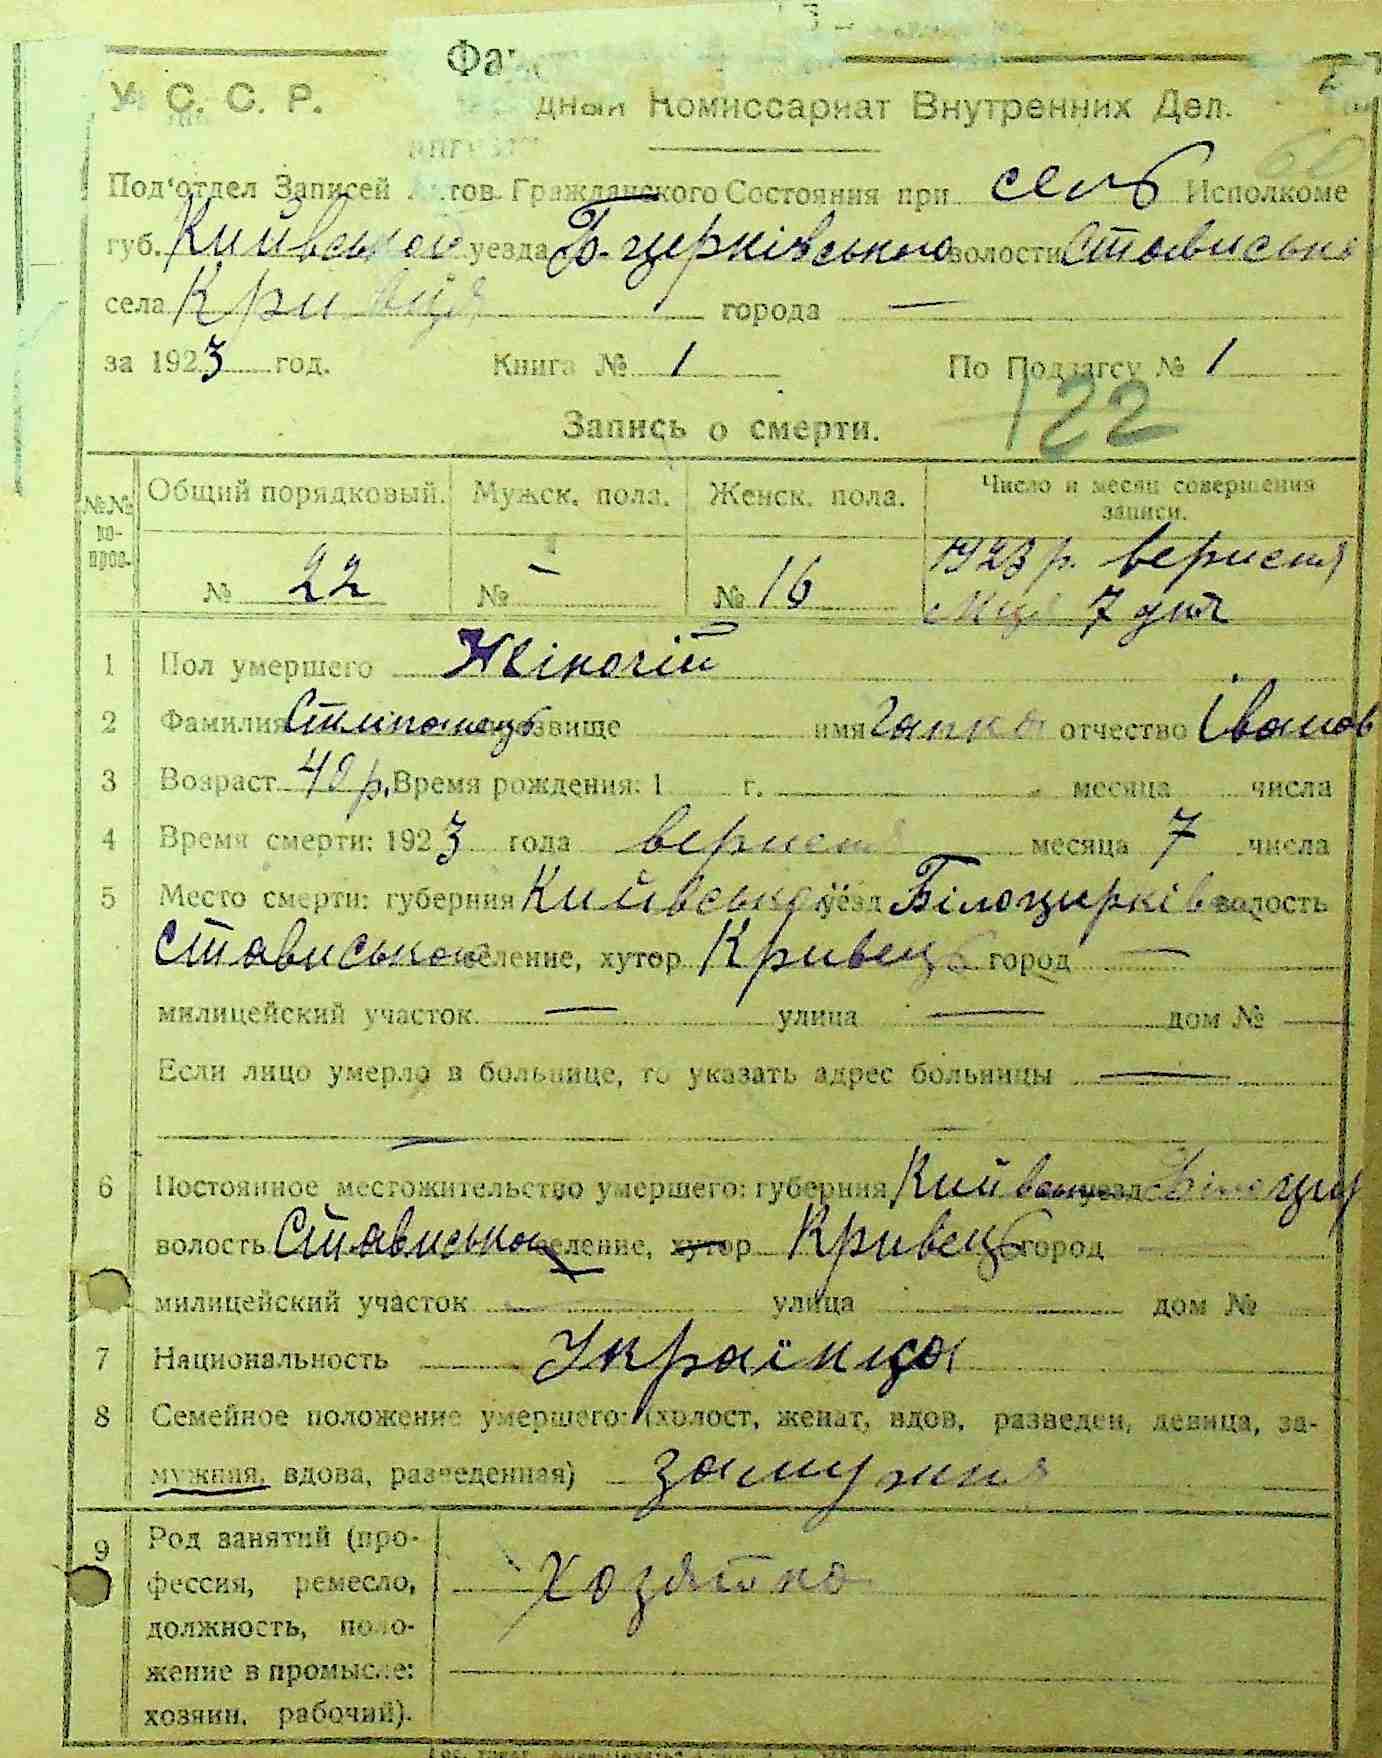 У. С. С. Р. дный Комиссариат Внутренних Дел.
Под'отдел Записей Актов Гражданского Состояния при сель Исполкоме
губ. Київської уезда Б-церківського волости Стависької
села Кривця города —
за 1923 год. Книга № 1 По Подзагсу № 1
122
Запись о смерти.
Общий порядковый. Мужск. пола. Женск. пола. Число и месяц совершения
записи.
№ 22 № - № 16 1923 р. вересня
місця 7 дня
1 Пол умершего Жіночій
2 Фамилия прозвище имя Гапка отчество Іванов
3 Возраст 40 р. Время рождения: 1 г. месяца числа
4 Время смерти: 1923 года вересня месяца 7 числа
5 Место смерти: губерния Київська уезд Білоцерків волость
Стависької селение, хутор Кривець город —
милицейский участок — улица — дом № —
Если лицо умерло в больнице, то указать адрес больницы —
6 Постоянное местожительство умершего: губерния Київ уезд Білоцер
волость Стависької селение, хутор Кривець город —
милицейский участок — улица — дом №
7 Национальность Українка
8 Семейное положение умершего: (холост, женат, вдов, разведен, девица, за-
мужняя, вдова, разведенная) замужня
9 Род занятий (про-
фессия, ремесло, Хозяйка
должность, поло-
жение в промысле:
хозяин, рабочий).